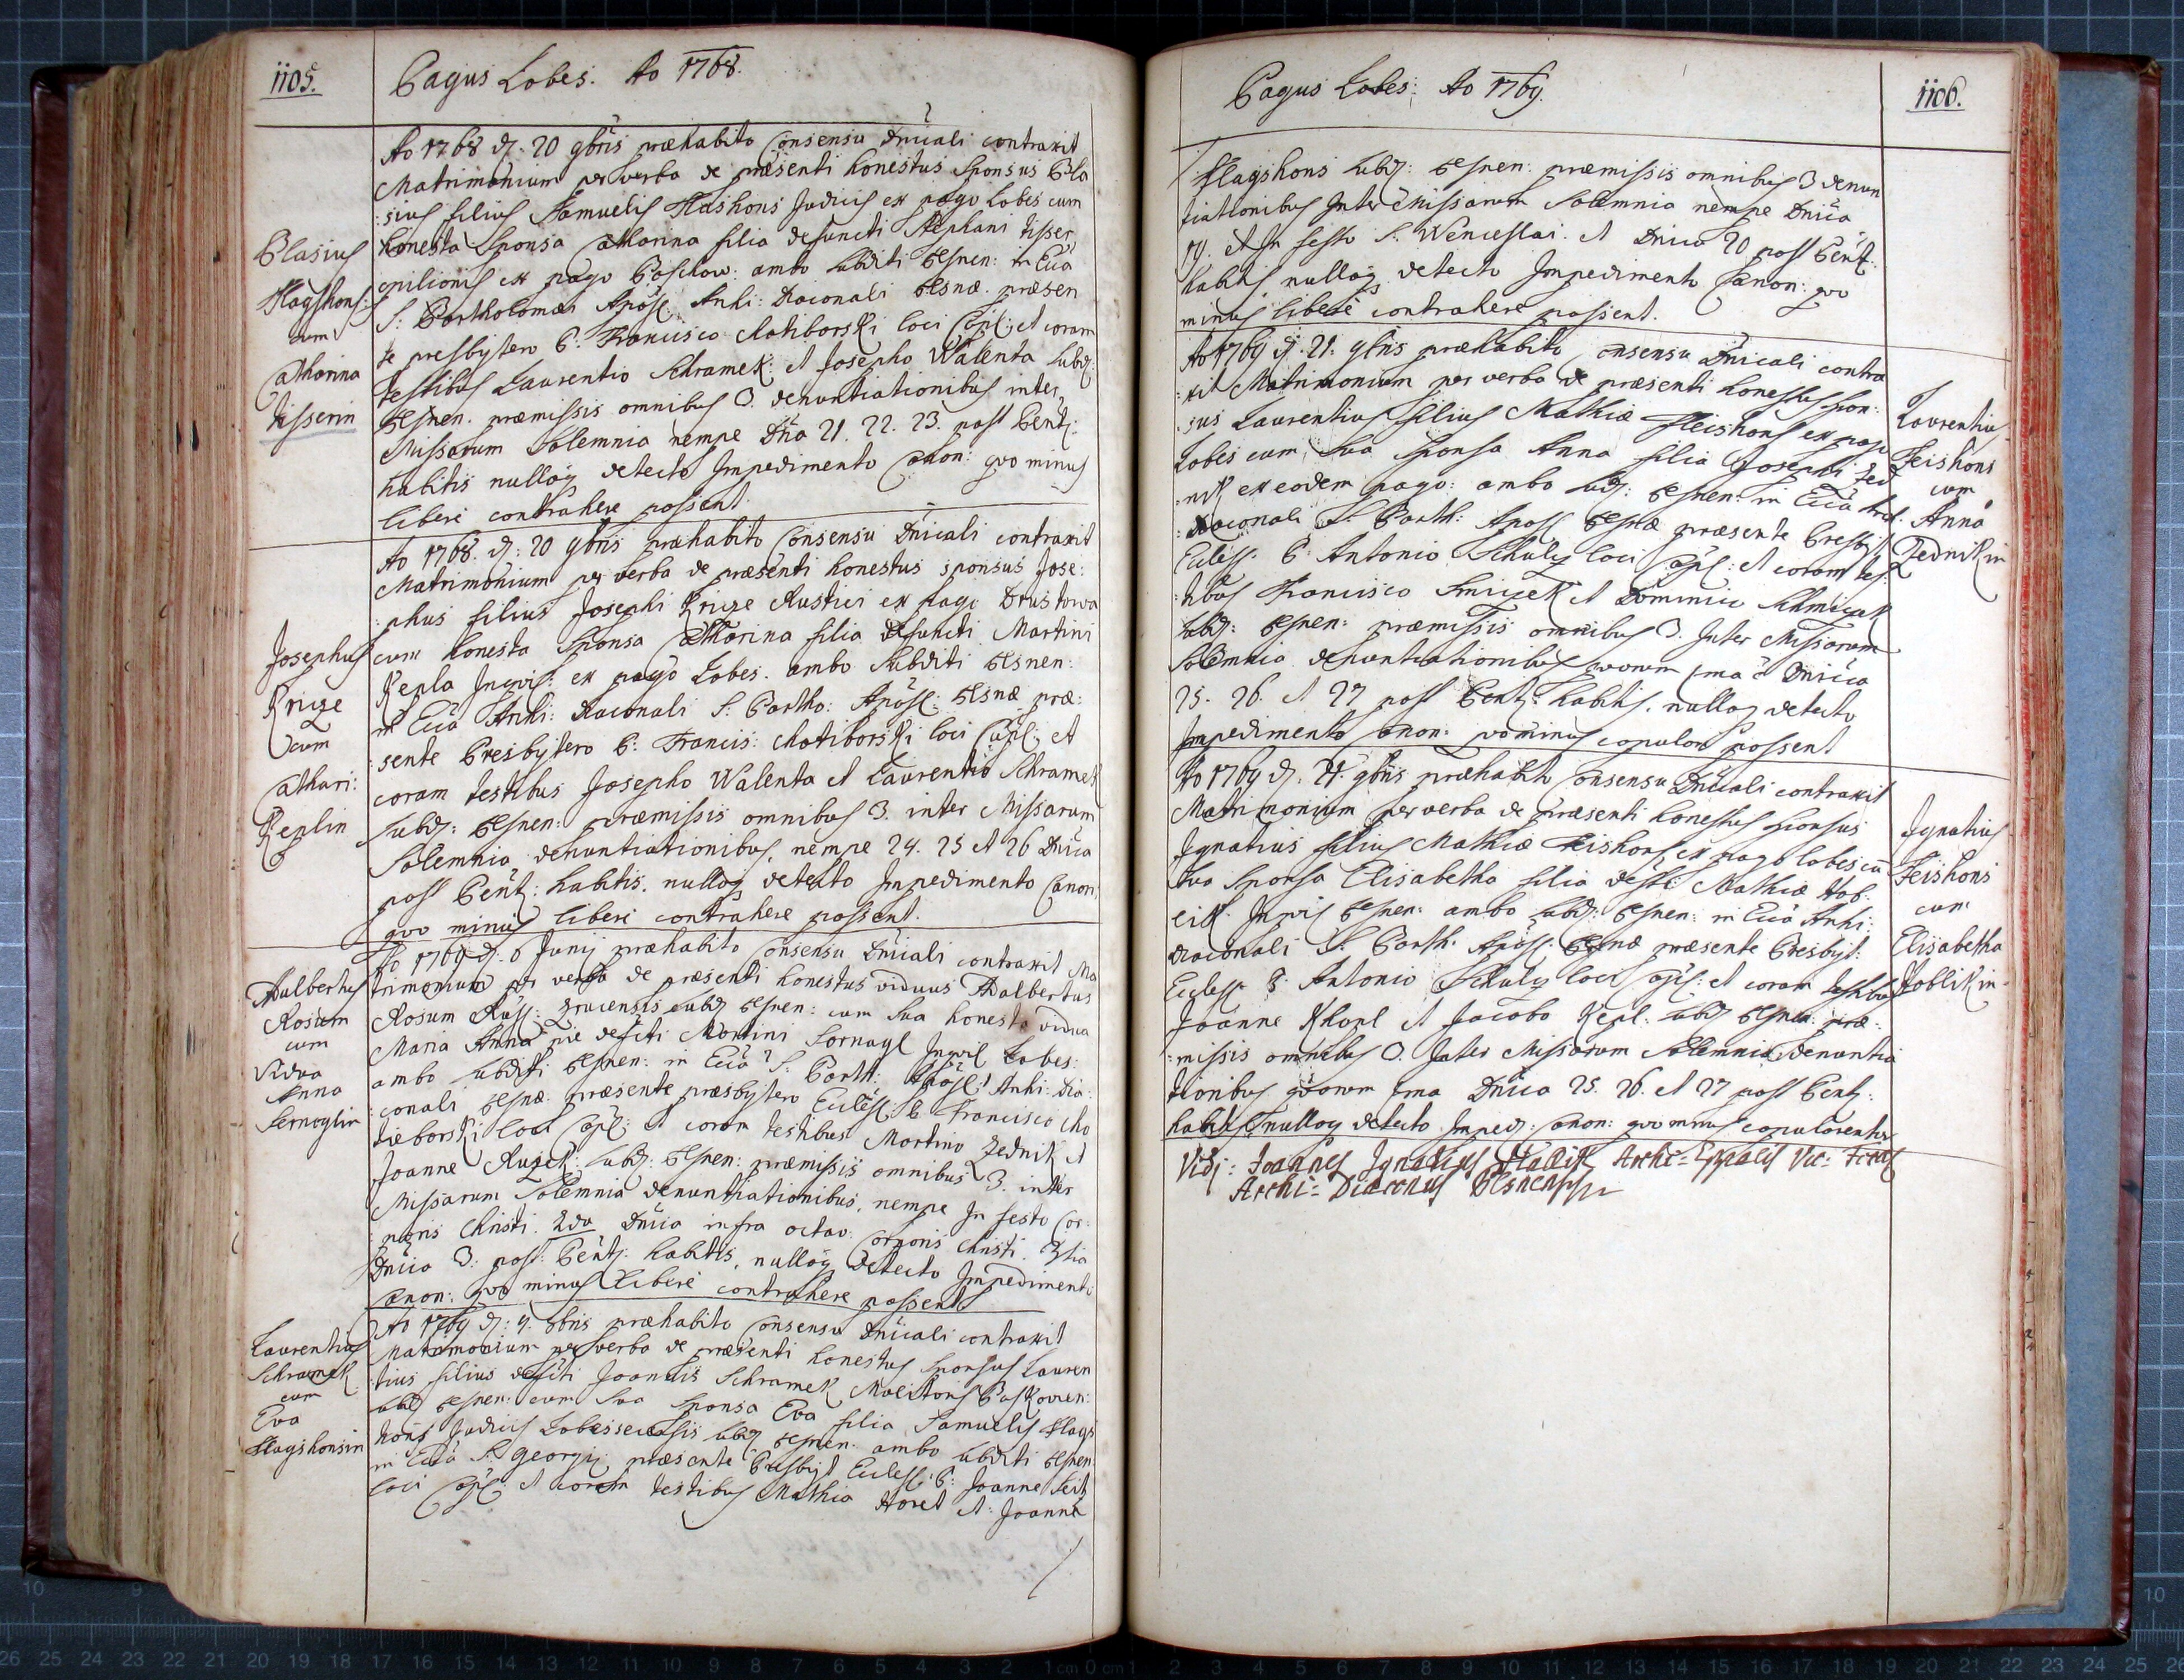 1105.
Pagus Lobes. Ao 1768.
Blasius
Flagshons
cum
Catharina
tisserin
Ao 1768 d. 20 9bris præhabito Consensu Dnicali contraxit
Matrimonium per verba de præsenti honestus Sponsus Bla
sius filius Samuelis Flashons Judicis ex pago Lobes cum
honesta Sponsa Catharina filia defuncti Stephani tisser
opilionis ex pago Boschow: ambo subditi Pelsnen: in Ecca
S: Bartholomæi Apost: Archi: Diaconali Pelsnæ. præsen
te presbytero P. Francisco Chotiborski loci Capl: et coram
testibus Laurentio Schramek: et Josepho Walenta subd:
Pelsnen. præmissis omnibus 3. denuntiationibus inter
Missarum Solemnia nempe Dna 21. 22. 23. post Pent:
habitis nulloq detecto Impedimento Canon: quo minus
liberi contrahere possent.
Josephus
Krize
cum
Cathari:
Keplin
Ao 1768. d: 20 9bris præhabito Consensu Dnicali contraxit
Matrimonium per verba de præsenti honestus sponsus Jose:
phus filius Josephi Krize Rustici ex pago Drustowa
cum honesta Sponsa Catharina filia defuncti Martini
Kepla Inqvis: ex pago Lobes. ambo Subditi Pelsnen:
in Ecca Archi: Diaconali S: Bartho: Apost: Pelsnæ præ:
sente Presbytero P: Francis: Chotiborski loci Capl: et
coram testibus Josepho Walenta et Laurentio Schramek
subd: Pelsnen: præmissis omnibus 3. inter Missarum
Solemnia denuntiationibus, nempe 24. 25 et 26 Dnica
post Pent: habitis. nulloq detecto Impedimento Canon:
quo minus liberi contrahere possent.
Adalbertus
Rosum
cum
Vidua
Anna
Sernoglin
Ao 1769 d: 6 Junij præhabito Consensu Dnicali contraxit Ma
trimonium per verba de præsenti honestus viduus Adalbertus
Rosum Russ: Zrucensis subd Pelsnen: cum Sua honesta vidua
Maria Anna pie defcti Martini Sornagl Inqvil Lobes:
ambo subditi Pelsnen: in Ecca S: Barth: Apost: Archi: Dia:
conali Pelsnæ. præsente præsbytero Ecless: P. Francisco Cho
tieborski loci Capl: et coram testibus Martino Zednik et
Joanne Ruzek: subd: Pelsnen: præmissis omnibus 3. inter
Missarum Solemnia denuntiationibus, nempe In festo Cor:
poris Christi. 2da Dnica infra octav: Corporis Christi. 3tia
Dnica 3. post: Pent: habitis, nulloq detecto Impedimento
Canon: quo minus liberè contrahere possent.
Laurentius
Schramek
cum
Eva
Flagshonsin
Ao 1769 d: 4. 8bris præhabito Consensu Dnicali contraxit
Matrimonium per verba de præsenti honestus Sponsus Lauren
tius filius defcti Joannis Schramek Molitoris Boskovien:
subd Pelsnen: cum Sua Sponsa Eva filia Samuelis Flags
hons Judicis Lobessensis subd Pelsnen: ambo subditi Pelsnen:
in Ecca S: Georgij præsente Presbyt Ecless: P: Joanne Seitz
loci Capl: et coram testibus Mathia Horet et: Joanne
Pagus Lobes: Ao 1769.
1106.
Flagshons subd: Pelsnen: præmissis omnibus 3 denun
tiationibus Inter Missarum Solemnia nempe Dnica
19. et In festo S: Wenceslai. et Dnica 20 post Pent:
habitis nulloq detecto Impedimento Canon: quo
minus liberè contrahere possent.
Ao 1769 d: 21: 9bris præhabito Consensu Dnicali contra
xit Matrimonium per verba de præsenti honestus spon:
sus Laurentius filius Mathiæ Fleishons ex pago
Lobes cum Sua Sponsa Anna filia Josephi Zed
nik ex eodem pago: ambo subd: Pelsnen: in Ecca Archi:
Diaconali S: Barth: Apost Pelsnæ præsente Presbyt
Ecless: P: Antonio Schulz loci Capl: et coram tes
tibus Francisco Smiczek et Dominico Schmicak
subd: Pelsnen: præmissis omnibus 3. Inter Missarum
Solemnia denuntiationibus quorum 1ma Dnica
25. 26. et 27 post Pent: habitis. nulloq detecto
Impedimento Canon: quominus copulari possent
Laurentius
Feishons
cum
Anna
Zednikin
Ao 1769 d: 21. 9bris præhabito Consensu Dnicali contraxit
Matrimonium per verba de præsenti honestus Sponsus
Ignatius filius Mathiæ Feishons ex pago Lobes cu
Sua Sponsa Elisabetha filia defti: Mathiæ Hob:
lik Inqvis Pelsnen: ambo subd: Pelsnen: in Ecca Archi:
Diaconali S: Barth: Apost: Pelsnæ præsente Presbyt:
Ecless: P: Antonio Schulz loci Capl: et coram testibus
Joanne Khorl et Jacobo Kepl: subd Pelsnen: præ:
missis omnibus 3. Inter Missarum Solemnia denuntia
tionibus quorum 1ma Dnica 25. 26. et 27 post Pent:
habitis nulloq detecto Imped: Canon: quo minus copularentur
Ignatius
Feishons
cum
Elisabetha
Hoblikin
Vidj: Joannes Ignatius Archi-Eppalis Vic:
Archi-Diaconus Pelsnensis